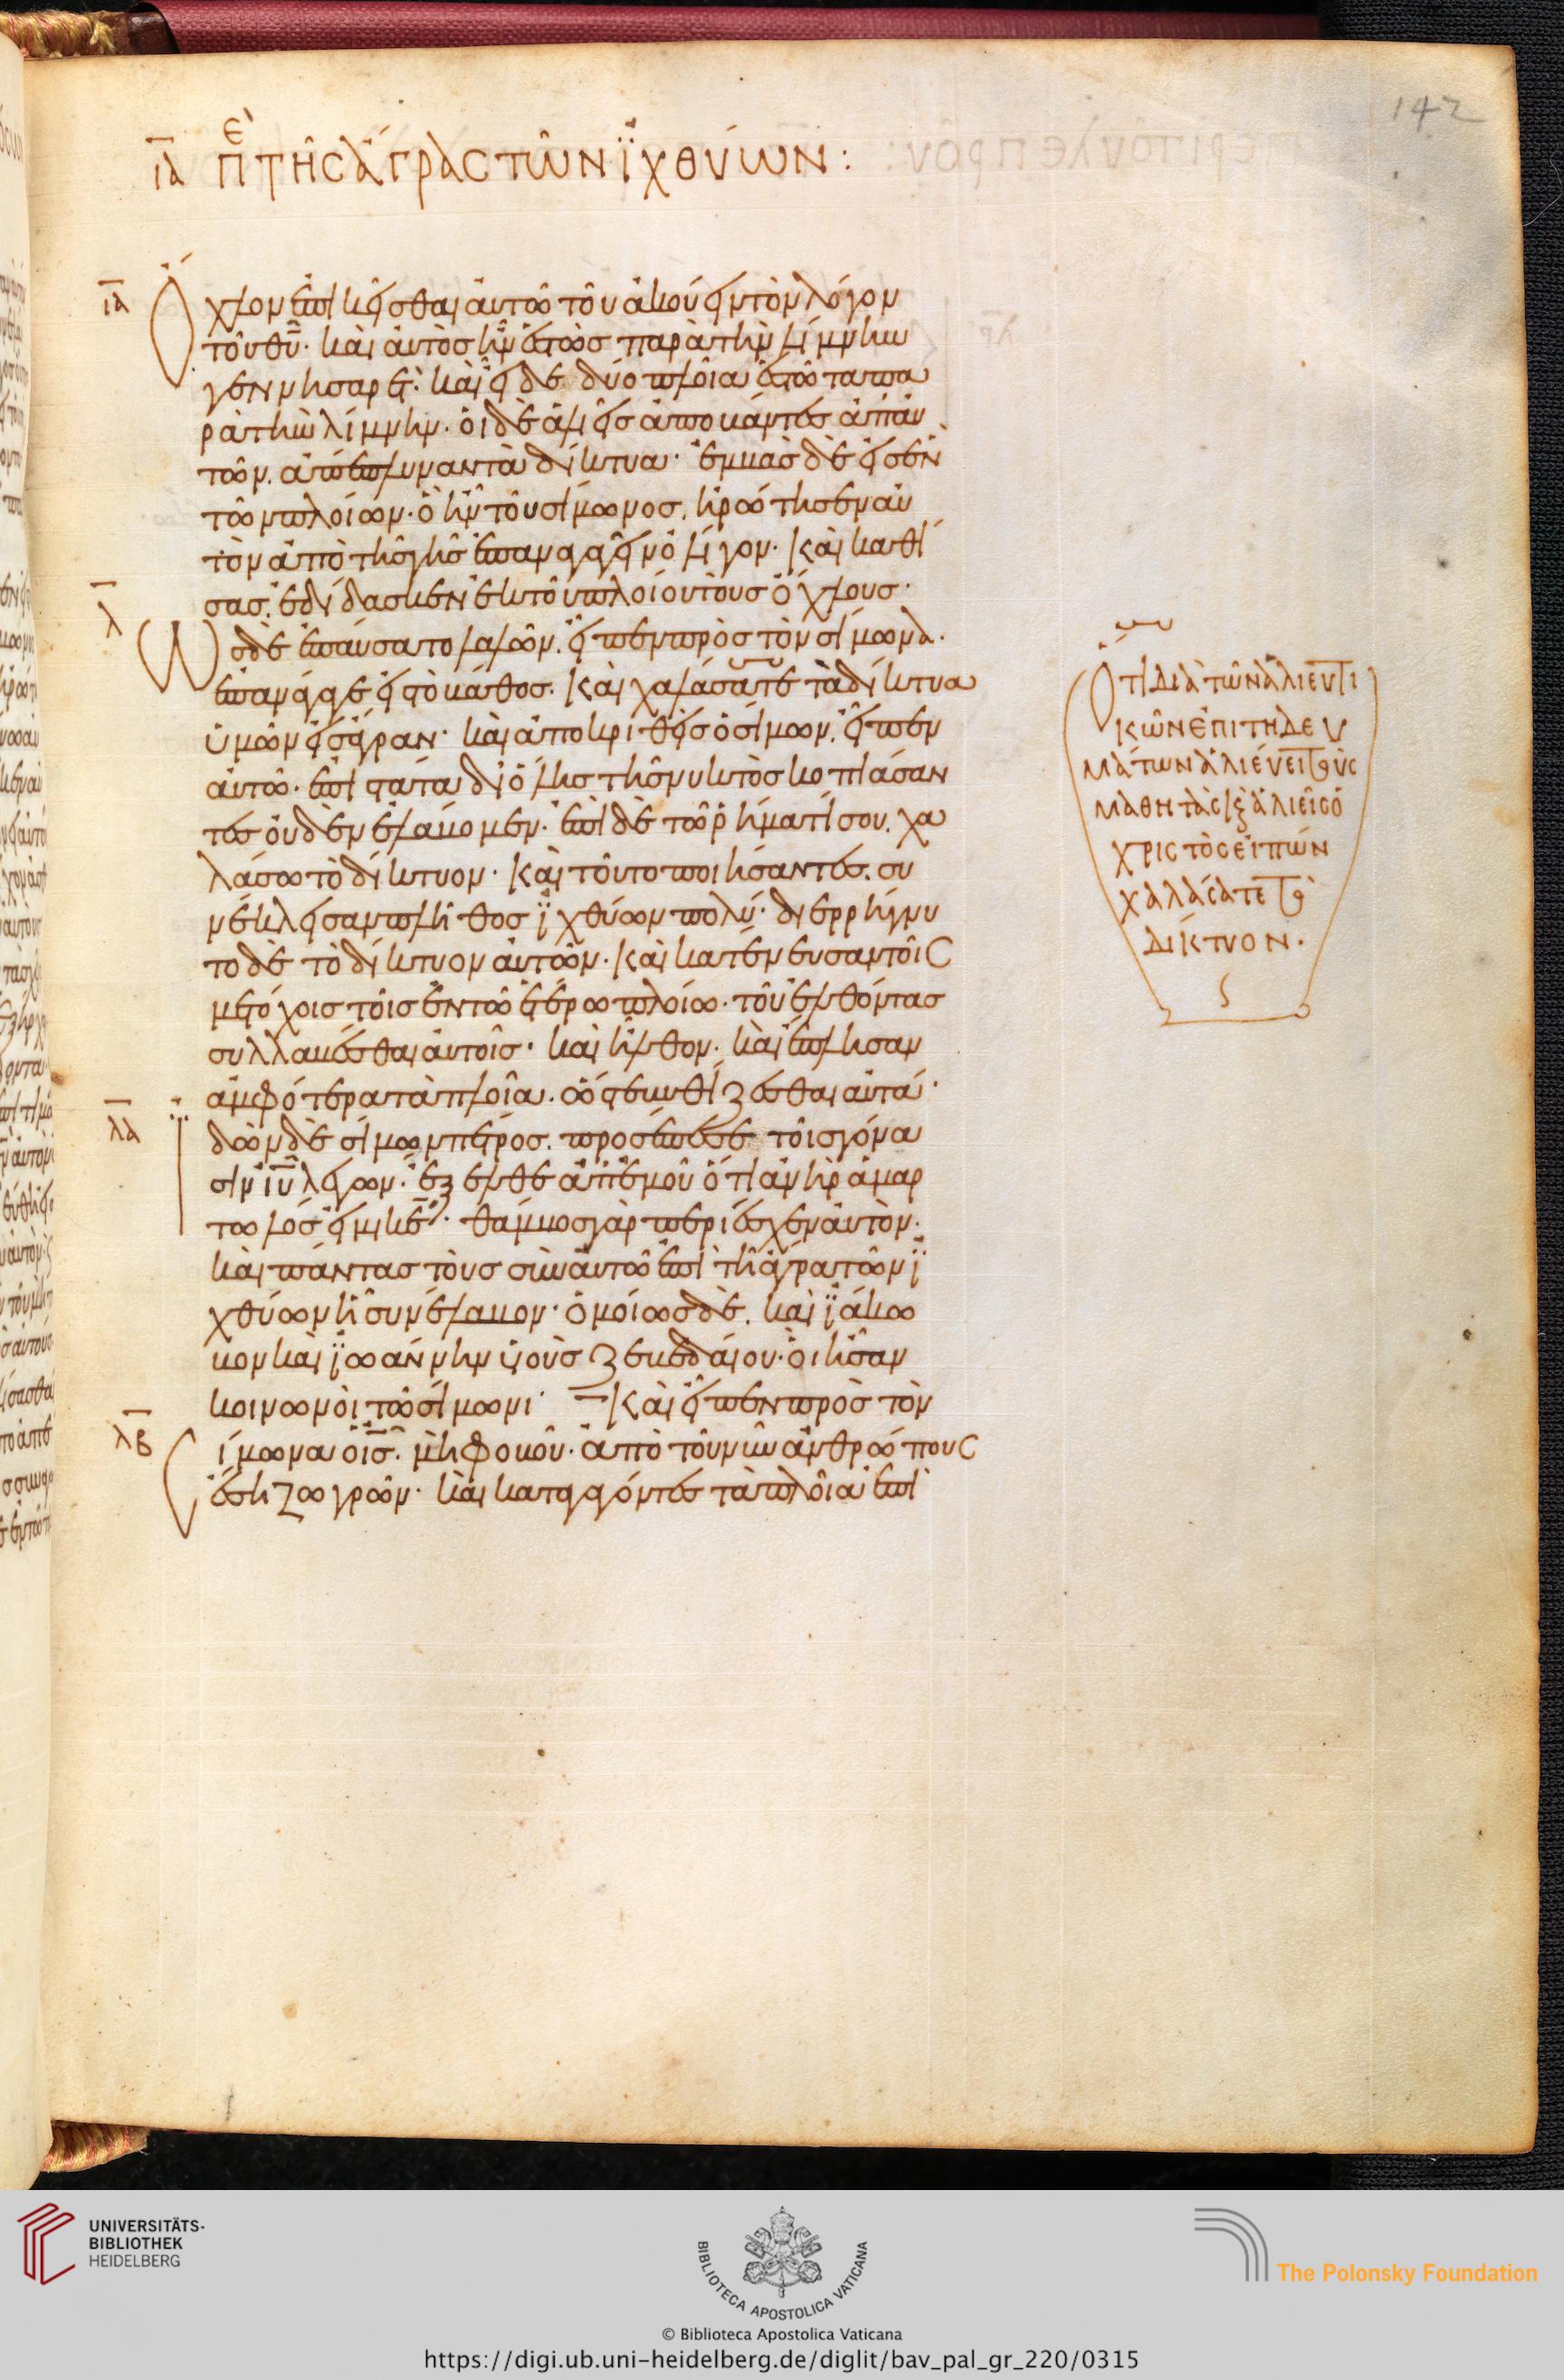 142
ια πε τῆς ἄγρας τῶν ϊχθύων:
ια Ὄχλον ἐπικεῖσθαι αὐτῶ τοῦ ἀκούειν τὸν λόγον
τοῦ θυ̅· καὶ αὐτὸς ἦν ἑστὼς παρὰ τὴν λίμνην
γεννησαρέτ· καὶ εἶδε δύο πλοῖα ἑστῶτα πα
ρὰ τὴν λίμνην· οἱ δὲ ἁλιεῖς ἀποβάντες ἀπ αὐ
τῶν. ἀπέπλυναν τὰ δίκτυα· ἐμβὰς δὲ εἰς ἓν
τῶν πλοίων· ὃ ἦν τοῦ σίμωνος, ἠρώτησεν αὐ
τὸν ἀπὸ τῆς γῆς ἐπαναγαγεῖν ὀλίγον· Καὶ καθί
σας. ἐδίδασκεν ἐκ τοῦ πλοίου τοὺς ὄχλους·
λ Ὡς δὲ ἐπαύσατο λαλῶν. εἶπεν πρὸς τὸν σίμωνα·
ἐπανάγαγε εἰς τὸ βάθος. Καὶ χαλάσατε τὰ δίκτυα
ὑμῶν εἰς ἄγραν· καὶ ἀποκριθεὶς ὁ σίμων. εἶπεν
αὐτῶ· ἐπιστάτα δι ὅλης τῆς νυκτὸς κοπιάσαν
τες οὐδὲν ἐλάβομεν· ἐπὶ δὲ τῶ ῥήματί σου. χα
λάσω τὸ δίκτυον· Καὶ τοῦτο ποιήσαντες. συ
νέκλεισαν πλῆθος ϊχθύων πολύ· διερρήγνυ
το δὲ τὸ δίκτυον αὐτῶν· Καὶ κατένευσαν τοῖς
μετόχοις τοῖς ἐν τῶ ἑτέρω πλοίω· τοῦ ἐλθόντας
συλλαβέσθαι αὐτοῖς· καὶ ἦλθον· καὶ ἔπλησαν
ἀμφότερα τὰ πλοῖα. ὥστε βυθίζεσθαι αὐτά·
λα ϊδὼν δὲ σίμων πέτρος. προσέπεσε τοῖς γόνα
σιν ιυ̅ λέγων· ἔξελθε ἀπ ἐμοῦ ὅτι ἀνὴρ ἁμαρ
τωλός εἰμι κε̅· θάμβος γὰρ περιέσχεν αὐτὸν·
καὶ πάντας τοὺς σὺν αὐτῶ ἐπὶ τῆ ἄγρα τῶν ϊ
χθύων ἧ συνέλαβον· ὁμοίως δὲ. καὶ ϊάκω
βον καὶ ϊωάννην υἱοὺς ζεβεδαίου· οἳ ἦσαν
κοινωνοὶ τῶ σίμωνι· Καὶ εἶπεν πρὸς τὸν
λβ Σίμωνα ὁ ις̅. μὴ φοβοῦ· ἀπὸ τοῦ νῦν ἀνθρώπους
ἔση ζωγρῶν· καὶ καταγαγόντες τὰ πλοῖα ἐπὶ
Ὅτι διὰ τῶν ἁλιευτι
κῶν ἐπιτηδευ
μάτων ἁλιεύει τοὺς
μαθητὰς ἐξ ἁλιεῖς ὁ
χριστὸς εἰπών
χαλάσατε τὸ
δίκτυον.
UNIVERSITÄTS-
BIBLIOTHEK
HEIDELBERG
BIBLIOTECA APOSTOLICA VATICANA
The Polonsky Foundation
© Biblioteca Apostolica Vaticana
https://digi.ub.uni-heidelberg.de/diglit/bav_pal_gr_220/0315